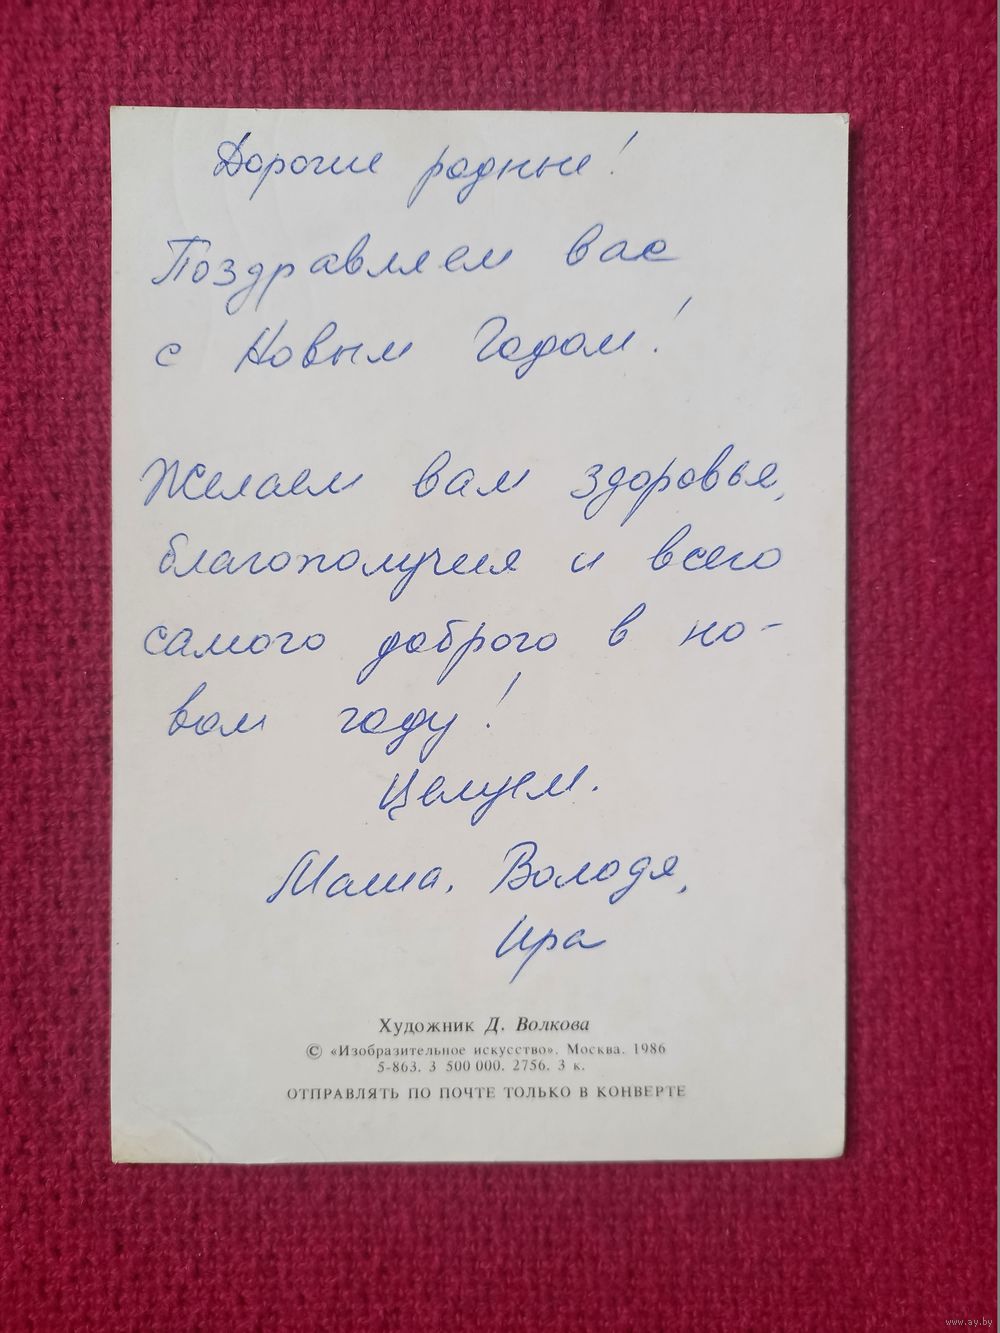 Дорогие родные!
Поздравляем вас
с Новым Годом!
Желаем вам здоровья,
благополучия и всего
самого доброго в но-
вом году!
Целуем.
Маша, Володя,
Ира
Художник Д. Волкова
© «Изобразительное искусство». Москва. 1986
5-863. 3 500 000. 2756. 3 к.
ОТПРАВЛЯТЬ ПО ПОЧТЕ ТОЛЬКО В КОНВЕРТЕ
www.ay.by